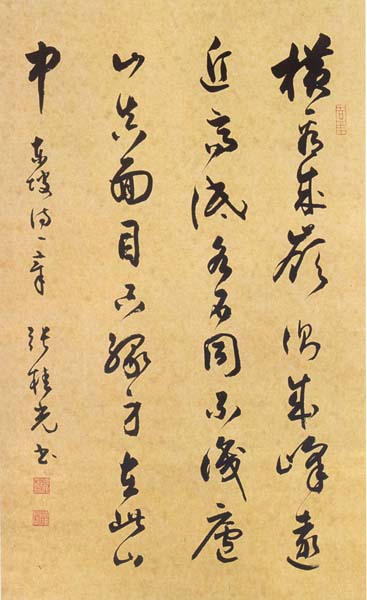 橫看成嶺側成峰遠
近高低各不同不識廬
山真面目只緣身在此山
中
東坡詩一章 張桂光書